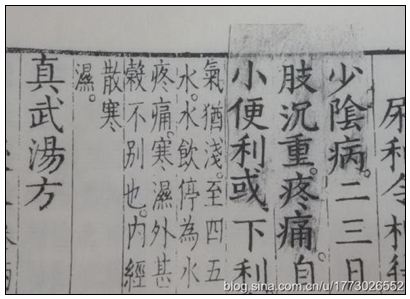 尿利令
少陰病。二三日
肢沉重。疼痛。自
小便利或下利
氣猶淺。至四五
水。水飲停為水
疼痛。寒濕外甚
穀不別也。內經
散寒
濕。
真武湯方
blog.sina.com.cn/u/1773026552